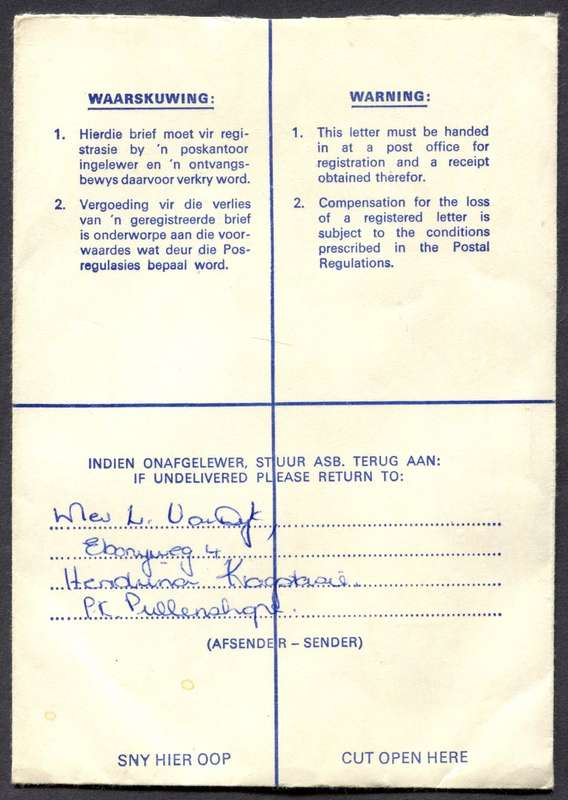 WAARSKUWING:
1. Hierdie brief moet vir regi-
strasie by 'n poskantoor
ingelewer en 'n ontvangs-
bewys daarvoor verkry word.
2. Vergoeding vir die verlies
van 'n geregistreerde brief
is onderworpe aan die voor-
waardes wat deur die Pos-
regulasies bepaal word.
WARNING:
1. This letter must be handed
in at a post office for
registration and a receipt
obtained therefor.
2. Compensation for the loss
of a registered letter is
subject to the conditions
prescribed in the Postal
Regulations.
INDIEN ONAFGELEWER, STUUR ASB. TERUG AAN:
IF UNDELIVERED PLEASE RETURN TO:
Mev L. Van Dyk,
Ebonyweg 4
Hendrina Kragstasie.
Pk. Pullenshope.
(AFSENDER – SENDER)
SNY HIER OOP
CUT OPEN HERE